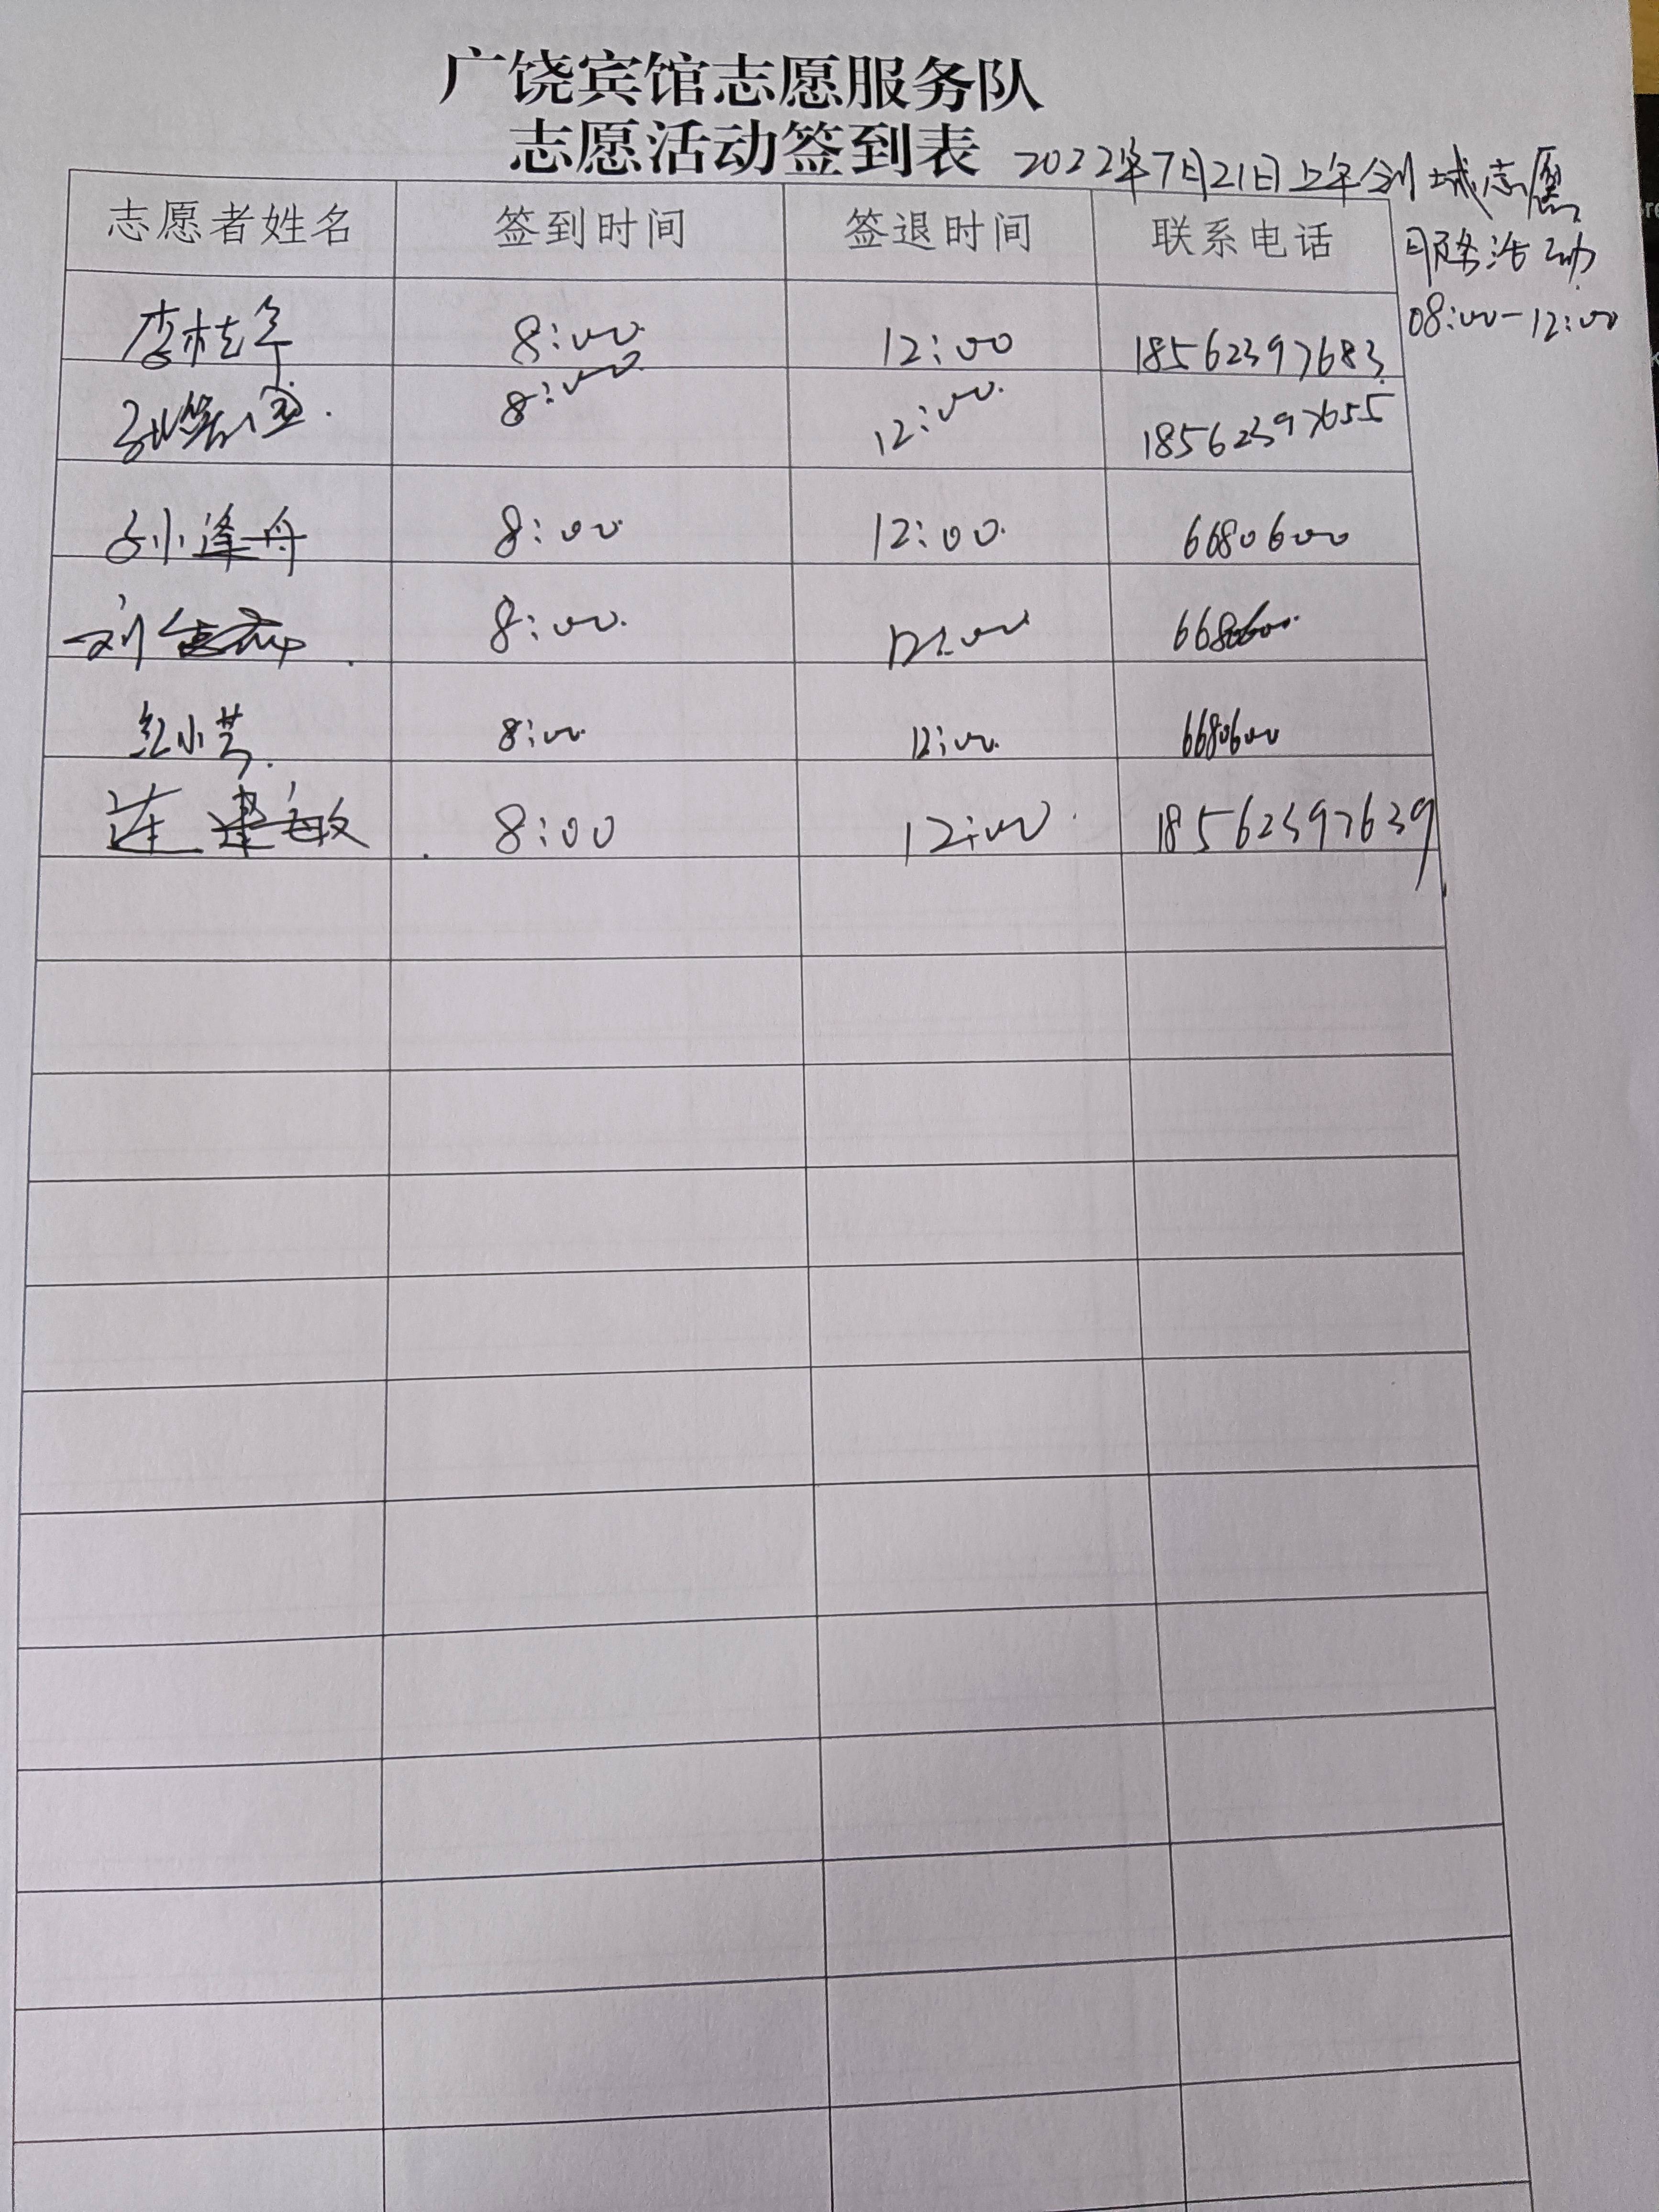 广饶宾馆志愿服务队
志愿活动签到表 2022年7月21日上午创城志愿
服务活动
08:00-12:00
志愿者姓名 签到时间 签退时间 联系电话
李桂 8:00 12:00 18562397683
8:00 12:00 18562397655
孙逢舟 8:00 12:00 6680600
刘 8:00 12:00 6680600
小芳 8:00 12:00 6680600
连建敏 8:00 12:00 18562397639